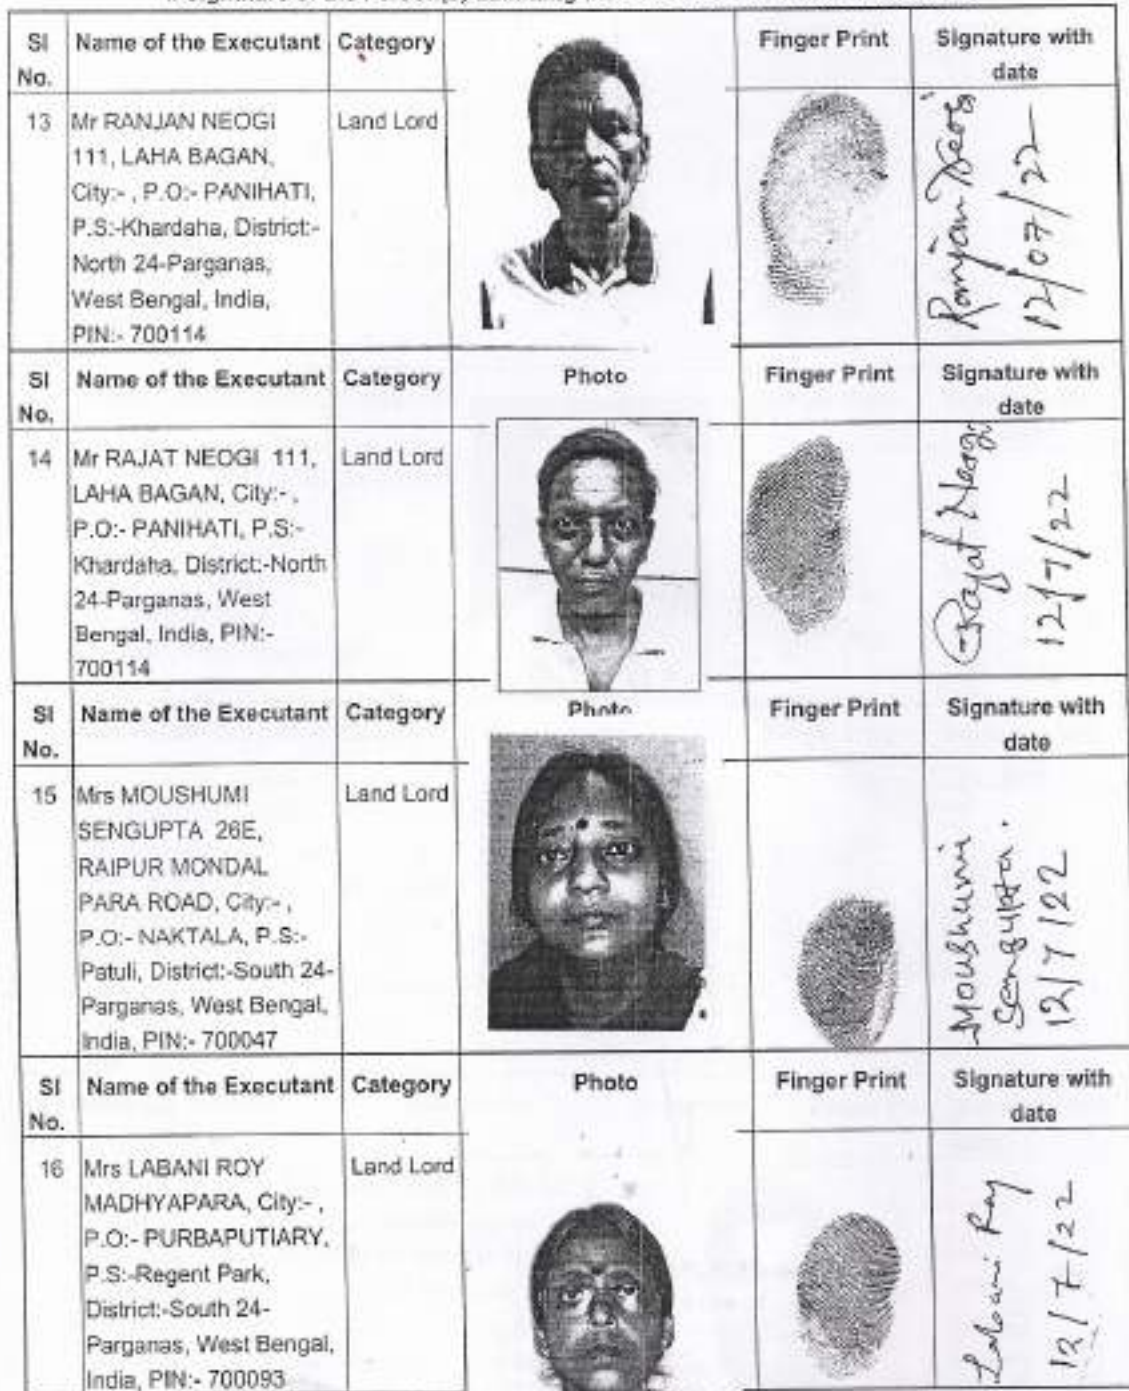 Signature of the Person(s) admitting the
SI No. Name of the Executant Category Finger Print Signature with date
13 Mr RANJAN NEOGI Land Lord
111, LAHA BAGAN,
City:- , P.O:- PANIHATI,
P.S:-Khardaha, District:-
North 24-Parganas,
West Bengal, India,
PIN:- 700114
Ranjan Neogi
12/07/22
SI No. Name of the Executant Category Photo Finger Print Signature with date
14 Mr RAJAT NEOGI 111, Land Lord
LAHA BAGAN, City:- ,
P.O:- PANIHATI, P.S:-
Khardaha, District:-North
24-Parganas, West
Bengal, India, PIN:-
700114
Rajat Neogi
12/7/22
SI No. Name of the Executant Category Photo Finger Print Signature with date
15 Mrs MOUSHUMI Land Lord
SENGUPTA 26E,
RAIPUR MONDAL
PARA ROAD, City:- ,
P.O:- NAKTALA, P.S:-
Patuli, District:-South 24-
Parganas, West Bengal,
India, PIN:- 700047
Moushumi
Sengupta.
12/7/22
SI No. Name of the Executant Category Photo Finger Print Signature with date
16 Mrs LABANI ROY Land Lord
MADHYAPARA, City:- ,
P.O:- PURBAPUTIARY,
P.S:-Regent Park,
District:-South 24-
Parganas, West Bengal,
India, PIN:- 700093
Labani Roy
12/7/22